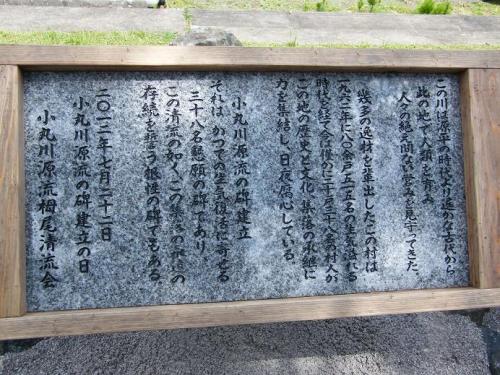 この川は源平の時代より遥かな古代から
此の地で人類を育み
人々の絶え間ない営みを見守ってきた。
幾多の逸材を輩出したこの村は
一九六二年に八〇余戸二一五名の生気溢れる
時代を経て今は僅かに二十戸三十八名の村人が
この地の歴史と文化、集落の承継に
力を集結し、日夜腐心している。
小丸川源流の碑建立
それは、かつての生気復活に寄せる
三十八名懇願の碑であり
この清流の如く、この集落の永久の
存続を誓う根性の碑でもある。
二〇一二年七月二十二日
小丸川源流の碑建立の日
小丸川源流栂尾清流会